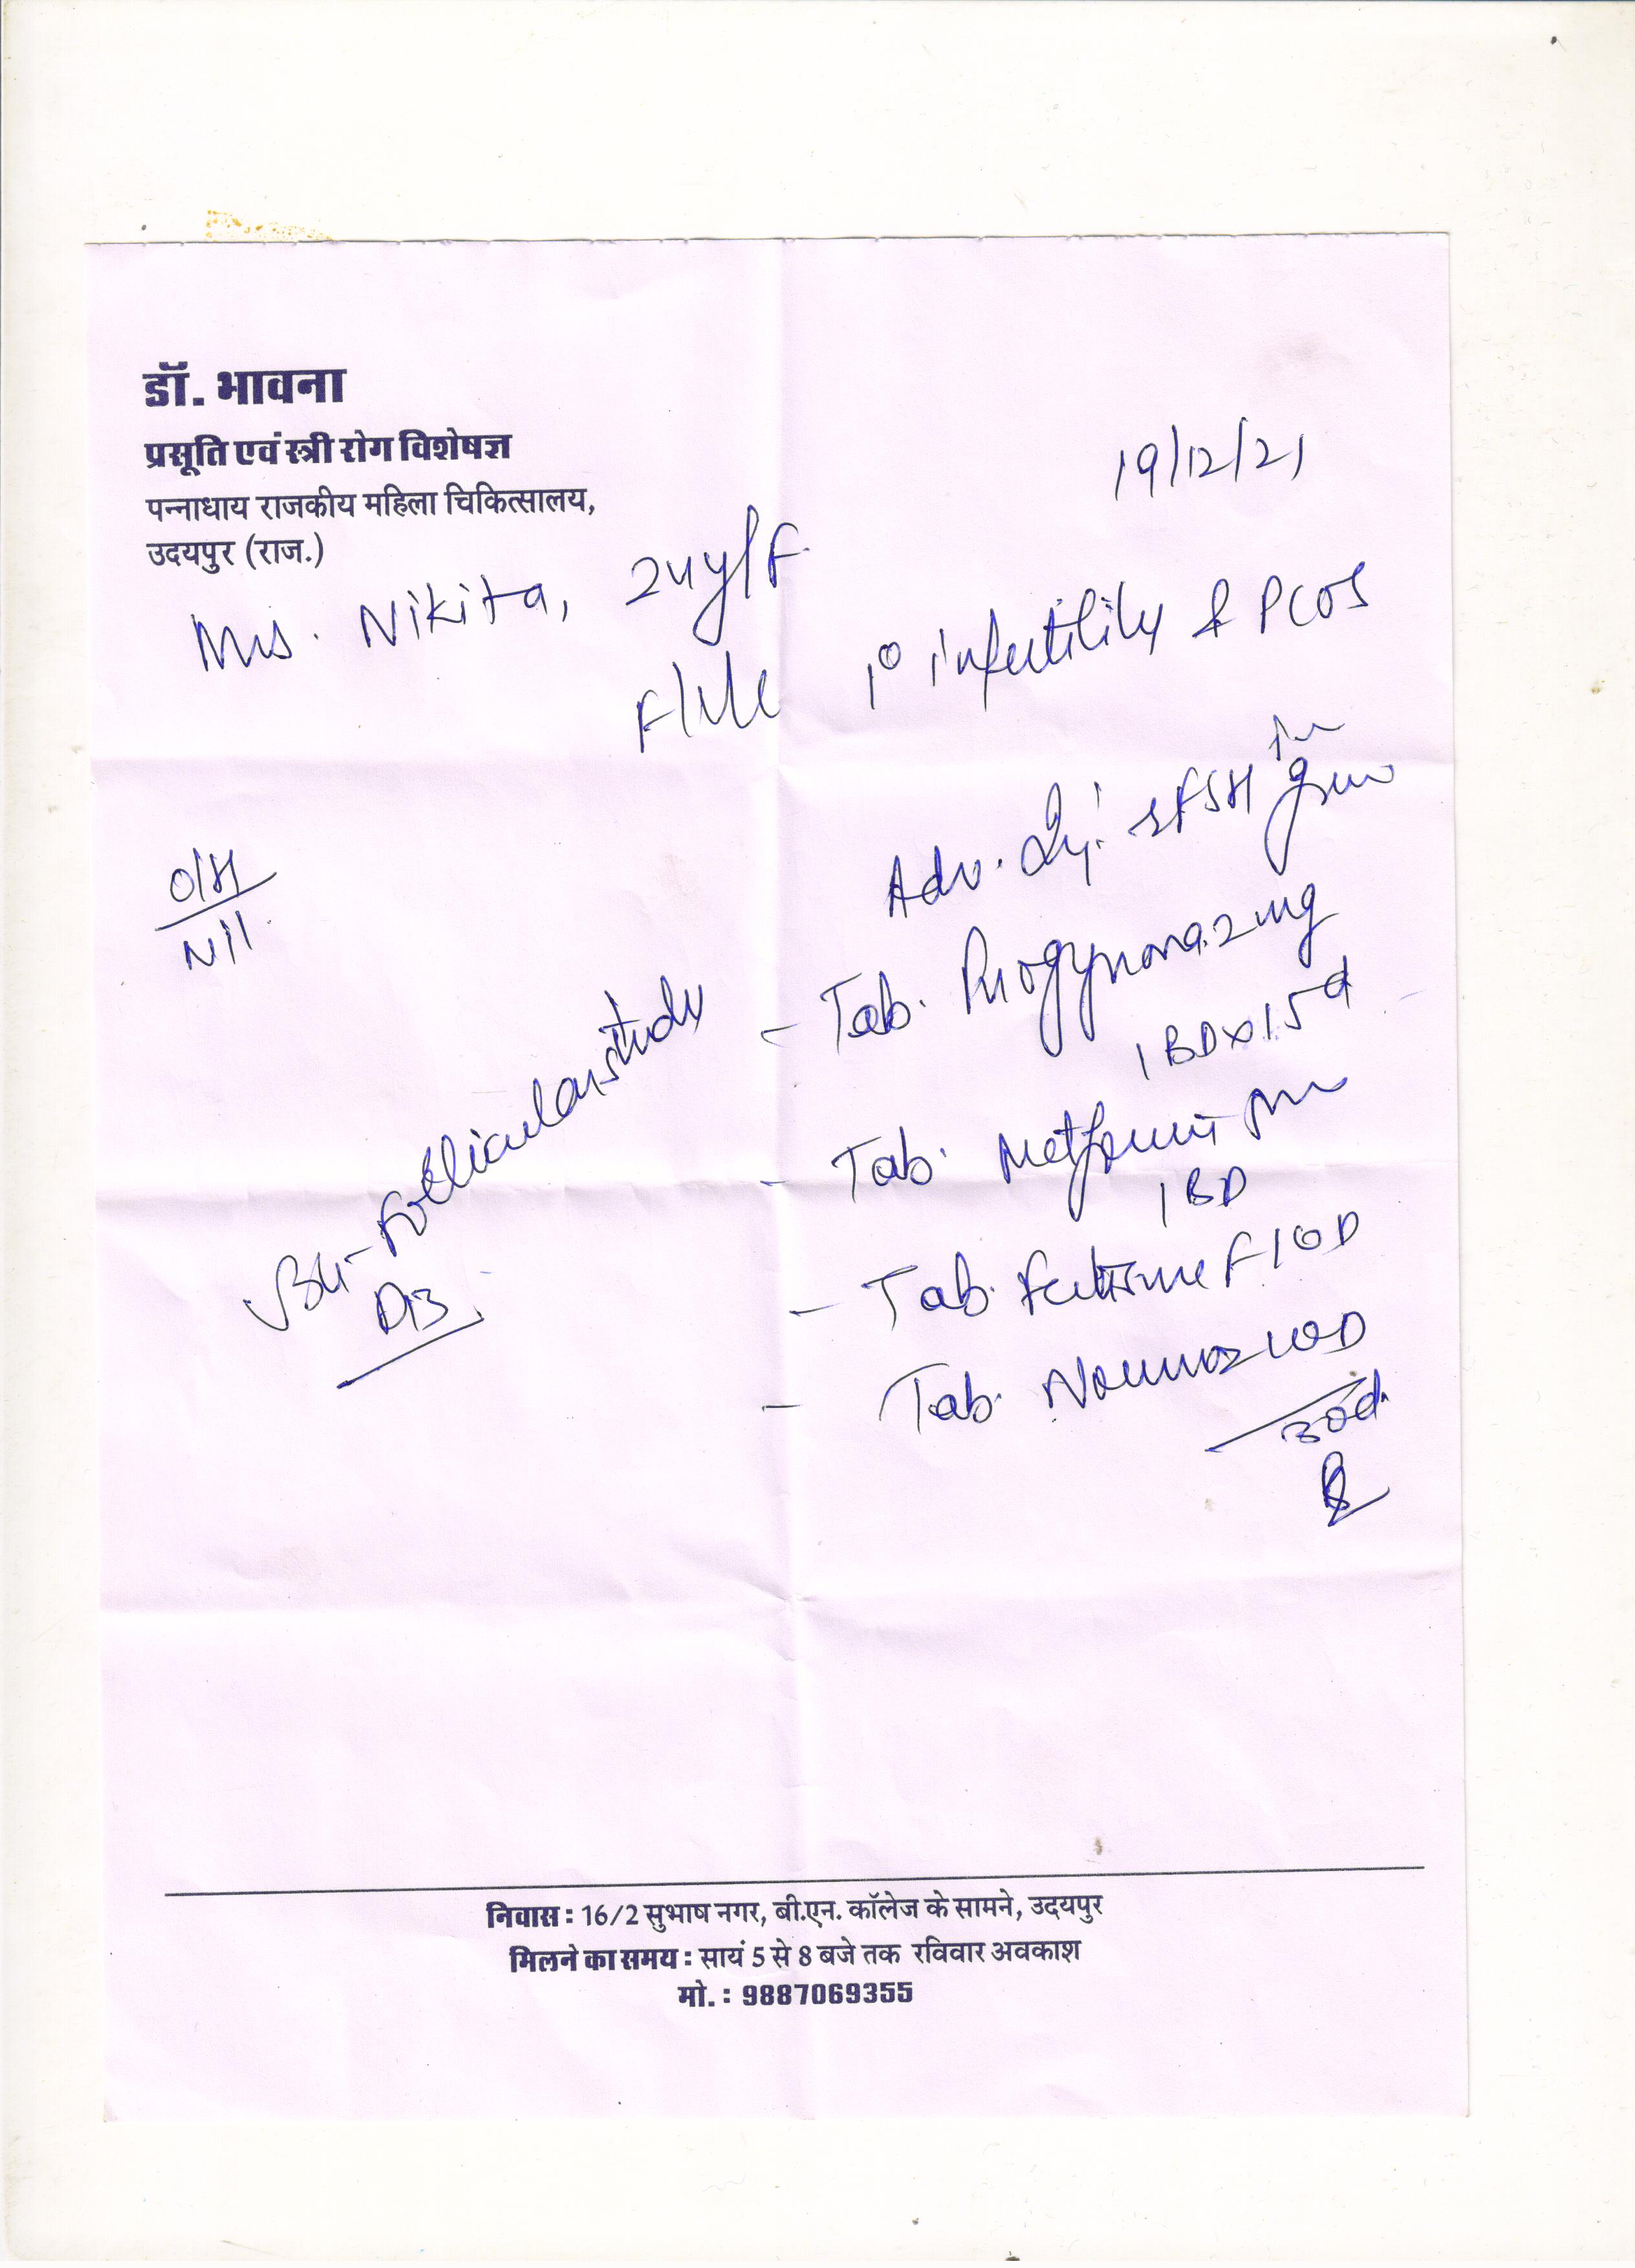 डॉ. भावना
प्रसूति एवं स्त्री रोग विशेषज्ञ
पन्नाधाय राजकीय महिला चिकित्सालय,
उदयपुर (राज.)
19/12/21
Mrs. Nikita, 24y/F
1° infertility & PCOS
Adv. Inj. rFSH
O/H
Nil
- Tab. Progynova 2mg
1 BD x 15d
Follicular study
D13
- Tab. Metformin
1 BD
- Tab. F 1 OD
- Tab. 1 OD
30d.
निवास : 16/2 सुभाष नगर, बी.एन. कॉलेज के सामने, उदयपुर
मिलने का समय : सायं 5 से 8 बजे तक रविवार अवकाश
मो. : 9887069355